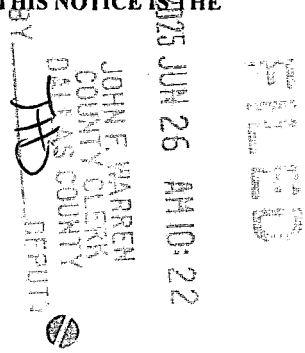 THIS NOTICE IS THE
FILED
2025 JUN 26 AM 10: 22
JOHN F. WARREN
COUNTY CLERK
DALLAS COUNTY
BY DEPUTY